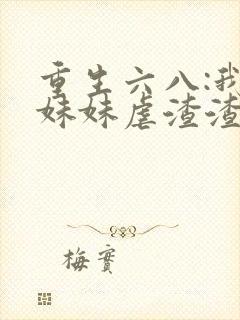 重生六八:我
妹妹虐渣渣
梅實